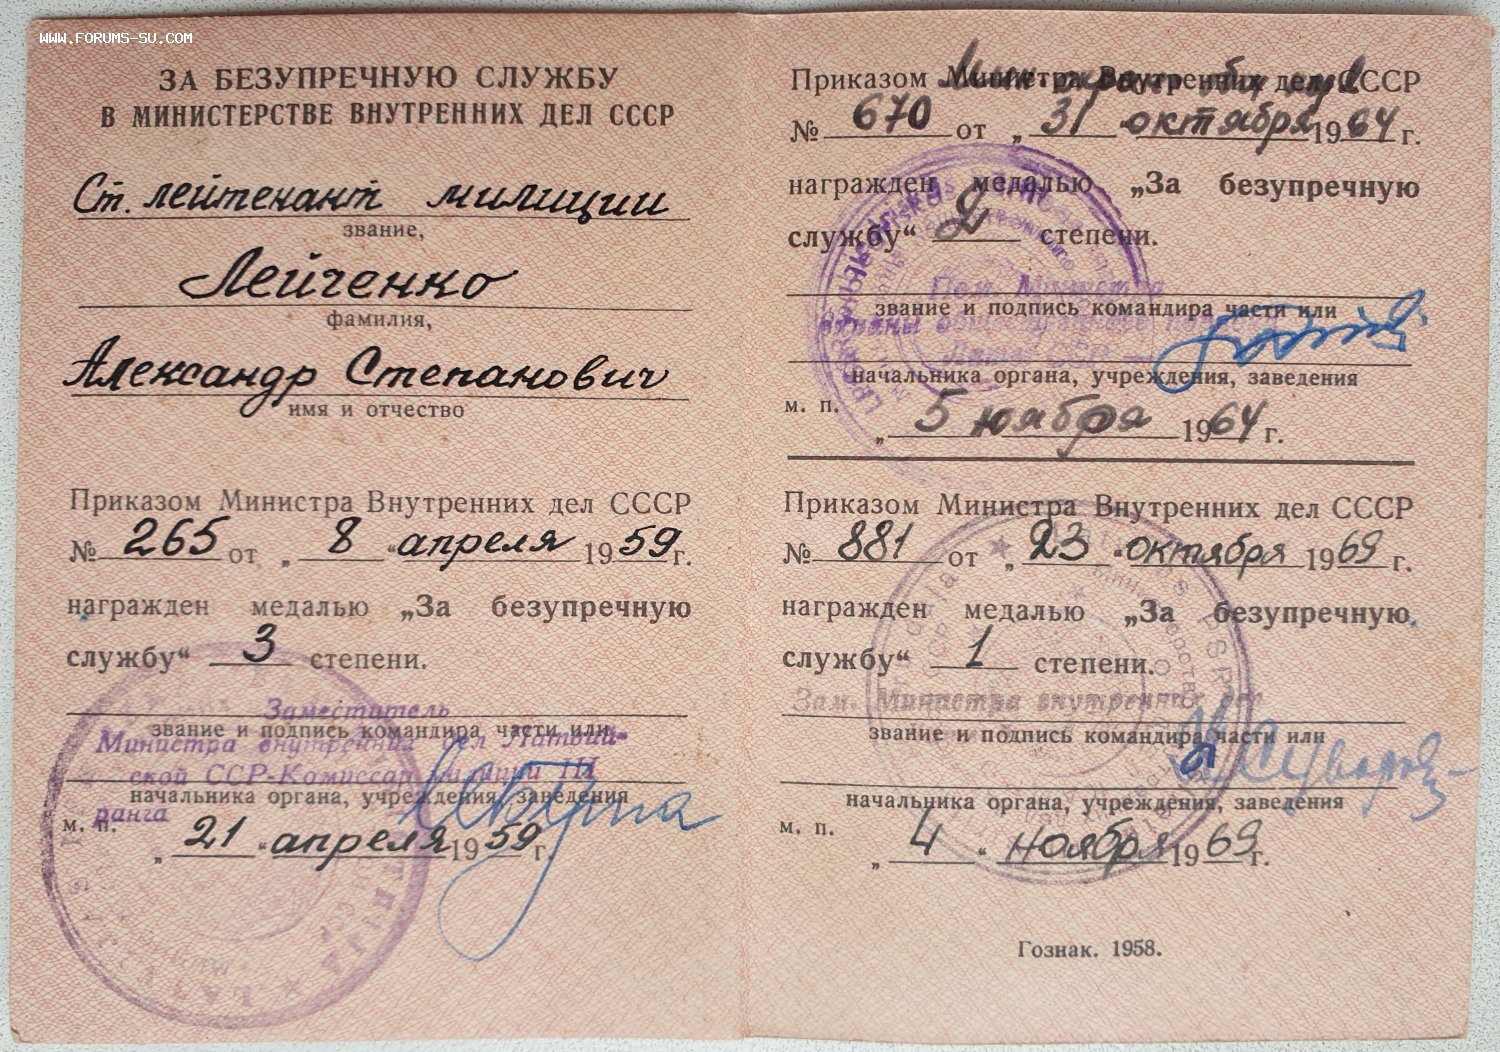 WWW.FORUMS-SU.COM
ЗА БЕЗУПРЕЧНУЮ СЛУЖБУ
В МИНИСТЕРСТВЕ ВНУТРЕННИХ ДЕЛ СССР
Ст. лейтенант милиции
звание,
Лейченко
фамилия,
Александр Степанович
имя и отчество
Приказом Министра Внутренних дел СССР
№ 265 от „ 8 “ апреля 1959 г.
награжден медалью „За безупречную
службу“ 3 степени.
Заместитель
звание и подпись командира части или
Министра внутренних дел Латвий-
ской ССР-Комиссар милиции III
начальника органа, учреждения, заведения
ранга
м. п.
„ 21 “ апреля 1959 г.
Приказом Министра Внутренних дел СССР
№ 670 от „ 31 “ октября 1964 г.
награжден медалью „За безупречную
службу“ 2 степени.
Пом. Министра
звание и подпись командира части или
охраны общественного порядка
Латв. ССР
начальника органа, учреждения, заведения
м. п.
„ 5 ноября 1964 г.
Приказом Министра Внутренних дел СССР
№ 881 от „ 23 “ октября 1969 г.
награжден медалью „За безупречную
службу“ 1 степени.
Зам. Министра внутренних дел
звание и подпись командира части или
начальника органа, учреждения, заведения
м. п.
„ 4 “ ноября 1969 г.
Гознак. 1958.